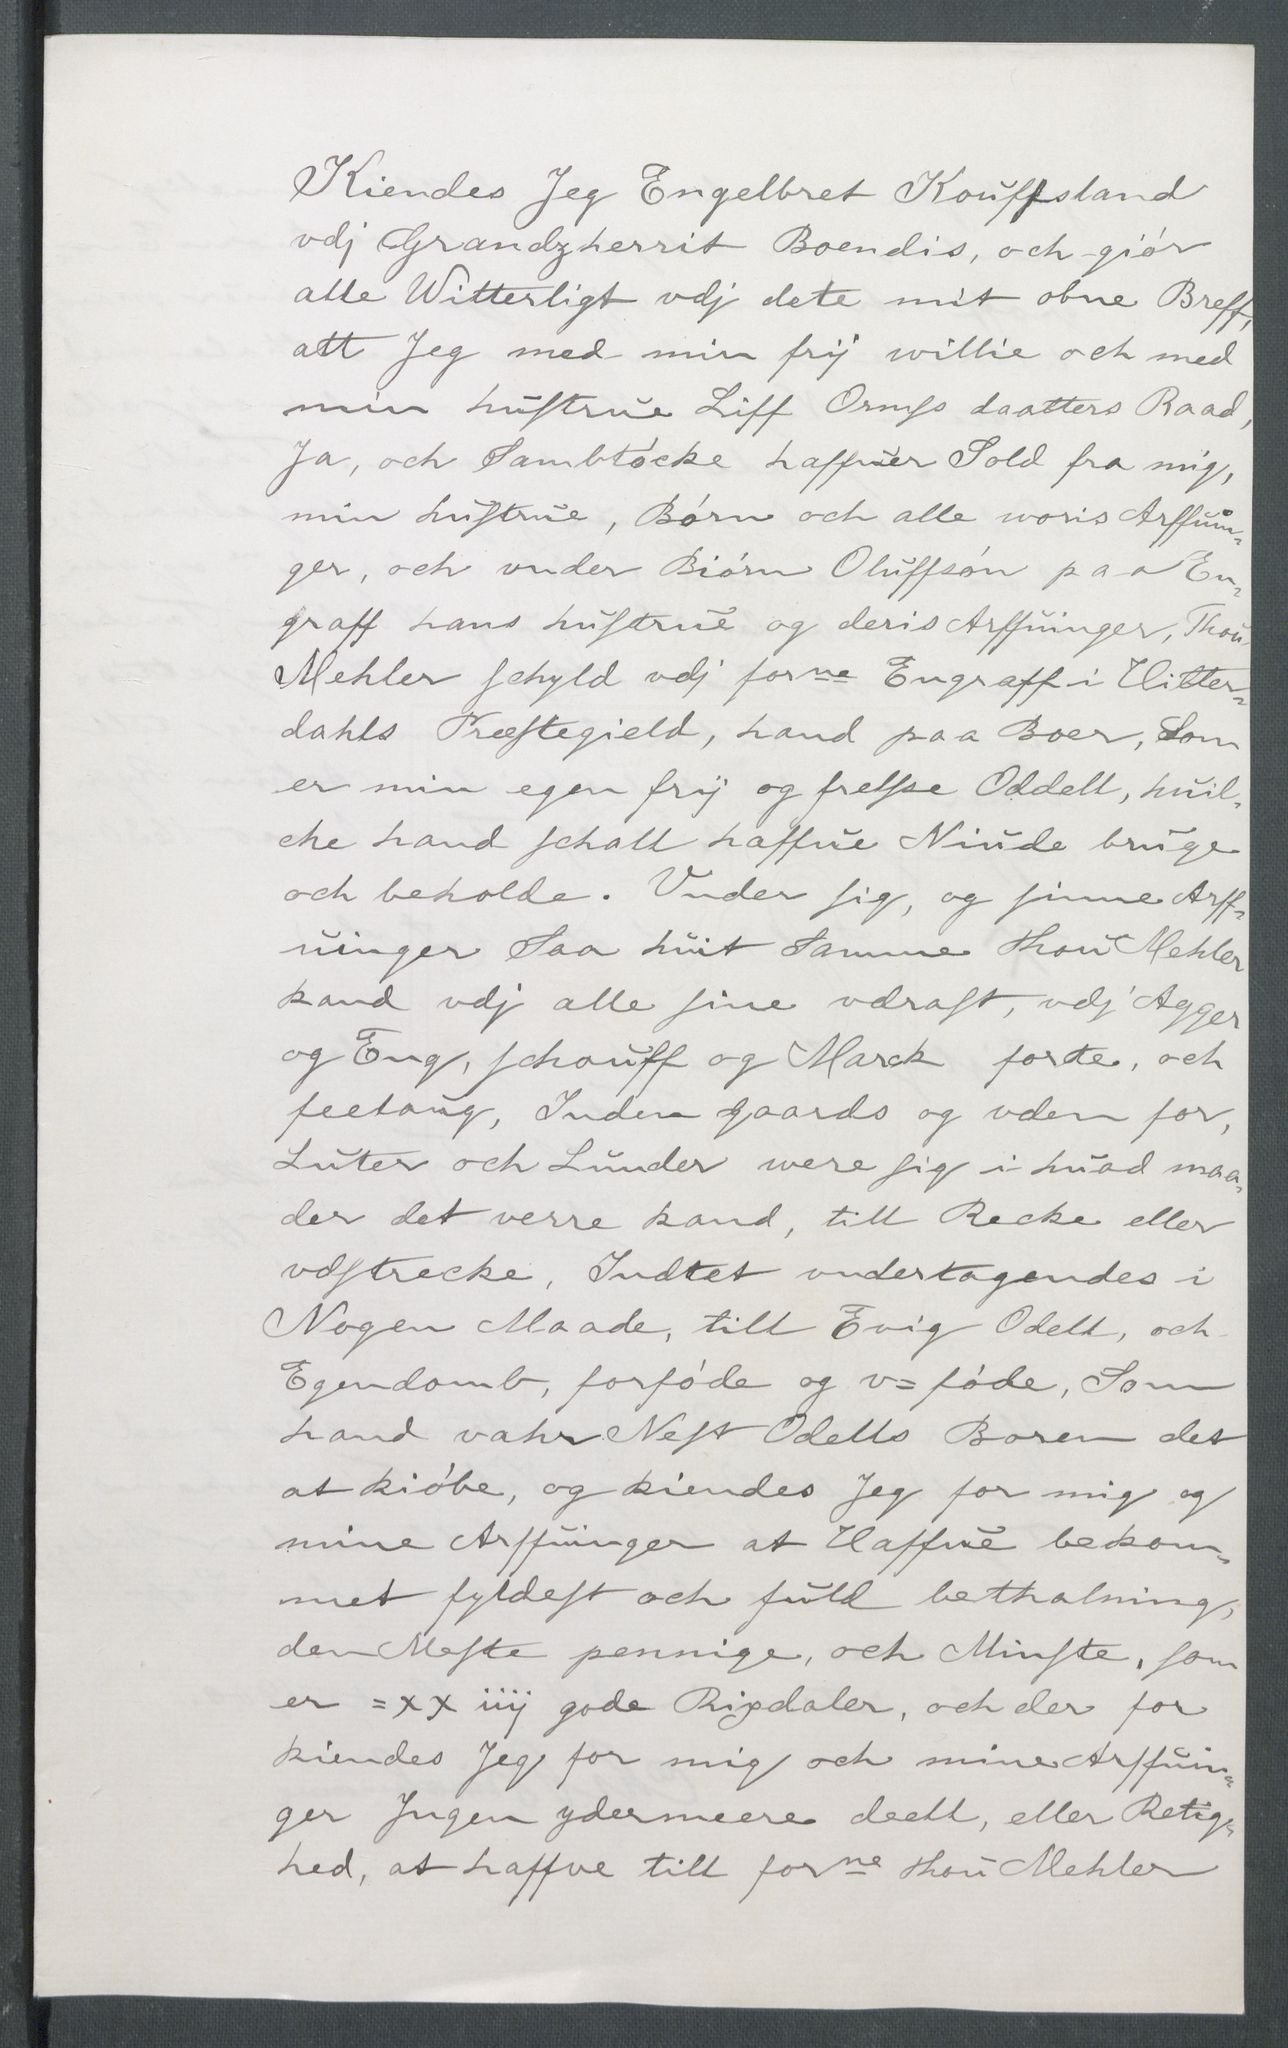 Kiendes Jeg Engelbret Kouffsland
vdj Grandzherrit Boendis, och giór
alle Witterligt vdj dete mit obne Breff,
att Jeg med min frij willie och med
min hustrue Liff Ormss daatters Raad,
Ja, och Sambtócke haffuer Sold fra mig,
min hustrue, Bórn och alle woris Arffuin-
ger, och vnder Biórn Oluffsón paa En-
graff hans hustrue og deris Arffuinger, Thou
Mehler schyld vdj forne Engraff i Hitter-
dahls Præstegield, hand paa Boer, Som
er min egen frij og frelsse Oddell, huil-
che hand schall haffue Niude bruge
och beholde. Vnder sig, og sinne Arff-
uinger Saa huit Samme thou Mehler
kand vdj alle sine vdrast, vdj Agger
og Eng, schouff og Marck forte, och
feetoug, Inden gaards og vden for,
Luter och Lunder were sig i huad maa-
der det verre kand, till Recke eller
vdstrecke, Indtet vndertagendes i
Nogen Maade, till Evig Odell, och
Egendomb, forfóde og v= fóde, Som
hand vahr Nest Odells Boren det
at kióbe, og kiendes Jeg for mig og
mine Arffuinger at Haffue bekom-
met fyldest och fuld bethalning,
den Meste pennige, och Minste, som
er =xx iiij gode Rixdaler, och der for
kiendes Jeg for mig och mine Arffuin-
ger Ingen ydermeere deell, eller Retig-
hed, at haffve till forne thou Mehler